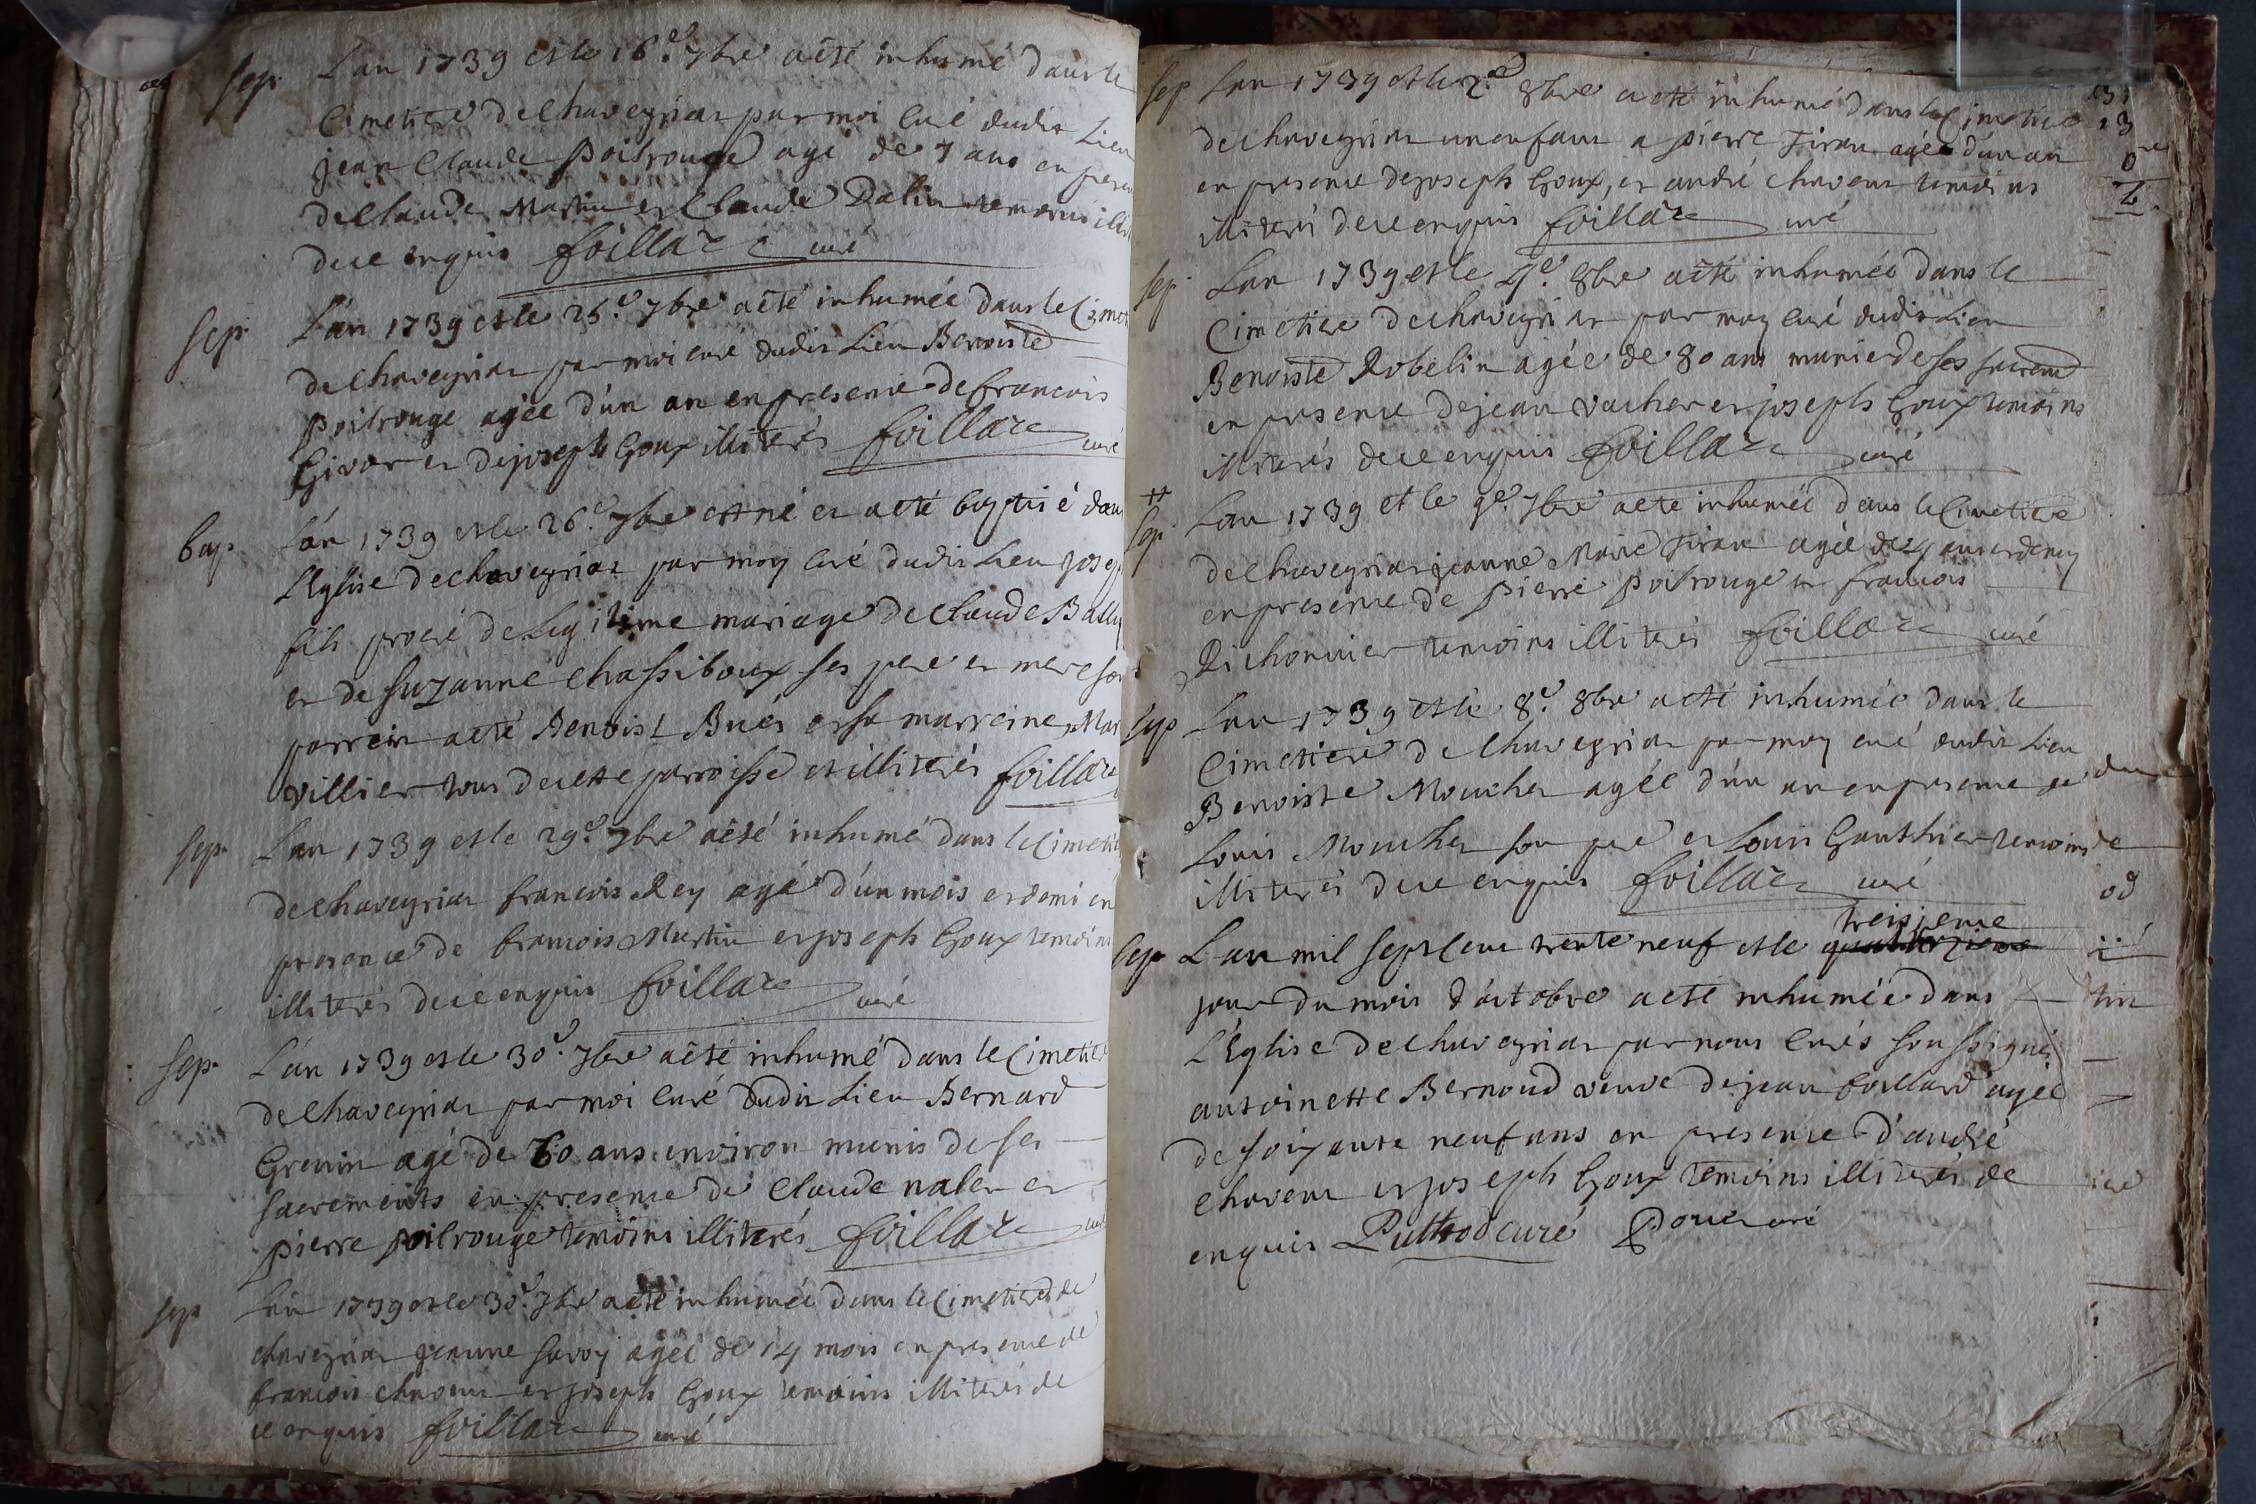 sep. L'an 1739 et le 16.e 7bre a été inhumé dans le
Cimetiere de Chaveyriat par moi curé dudit Lieu
jean Claude Poilrouge agé de 7 ans en presen
de Claude Martin et Claude Dalin temoins
de ce enquis foillard curé
sep. L'an 1739 et le 25.e 7bre a été inhumée dans le Cimet
de Chaveyriat par moi curé dudit Lieu Benoiste
Poilrouge agée d'un an en presence de francois
et de joseph Goux illiterés foillard curé
bap. L'an 1739 et le 26.e 7bre est né et a été baptisé dans
L'Eglise de chaveyriat par moy curé dudit Lieu josep
fils procré de Legitime mariage de Claude Bally
et de suzanne chassiboux ses pere et mere son
parrein a été Benoist Buet et sa marreine Mar
villier tous de cette parroisse et illiterés foillard
sep. L'an 1739 et le 29.e 7bre a été inhumé dans le Cimetie
de chaveyriat francois Rey agé d'un mois et demi en
presence de francois Martin et joseph Goux temoins
illiterés de ce enquis foillard curé
sep. L'an 1739 et le 30.e 7bre a été inhumé dans le Cimetier
de Chaveyriat par moi curé dudit Lieu Bernard
Grenin agé de 60 ans environ munis de ses
sacrements en presence de Claude nalet et
pierre poilrouge temoins illiterés foillard curé
sep. L'an 1739 et le 30.e 7bre a été inhumée dans le Cimetiere de
chaveyriat jeanne savoy agée de 14 mois en presence de
francois chavent et joseph Goux temoins illiterés de
ce enquis foillard curé
sep. L'an 1739 et le 2.e 8bre a été inhumé dans le Cimetiere
de chaveyriat un enfant a pierre Tiran agé d'un an
en presence de joseph Goux, et andré chavent temoins
illiterés de ce enquis foillard curé
sep. L'an 1739 et le 4.e 8bre a été inhumée dans le
Cimetiere de chaveyriat par moy curé dudit Lieu
Benoiste Robelin agée de 80 ans munie de ses sacrem
en presence de jean vacher et joseph Goux temoins
illiterés de ce enquis foillard curé
sep. L'an 1739 et le 9.e 7bre a été inhumée dans le Cimetiere
de Chaveyriat jeanne Marie Tiran agée de 4 ans et demy
en presence de pierre poilrouge et francois
Dichonnier temoins illiterés foillard curé
sep. L'an 1739 et le 8.e 8bre a été inhumée dans le
Cimetiere de Chaveyriat par moy curé dudit Lieu
Benoiste Moucher agée d'un an en presence de
Louis Moucher son pere et Louis Gauthier temoins
illiterés de ce enquis foillard curé
treizieme
sep. L'an mil sept cent trente neuf et le quatorzieme
jour du mois d'octobre a été inhumée dans
L'Eglise de chaveyriat par nous curés soussignés
antoinette Bernoud veuve de jean foillard agée
de soixante neuf ans en presence d'andré
chavent et joseph Goux temoins illiterés de
enquis Puthod curé